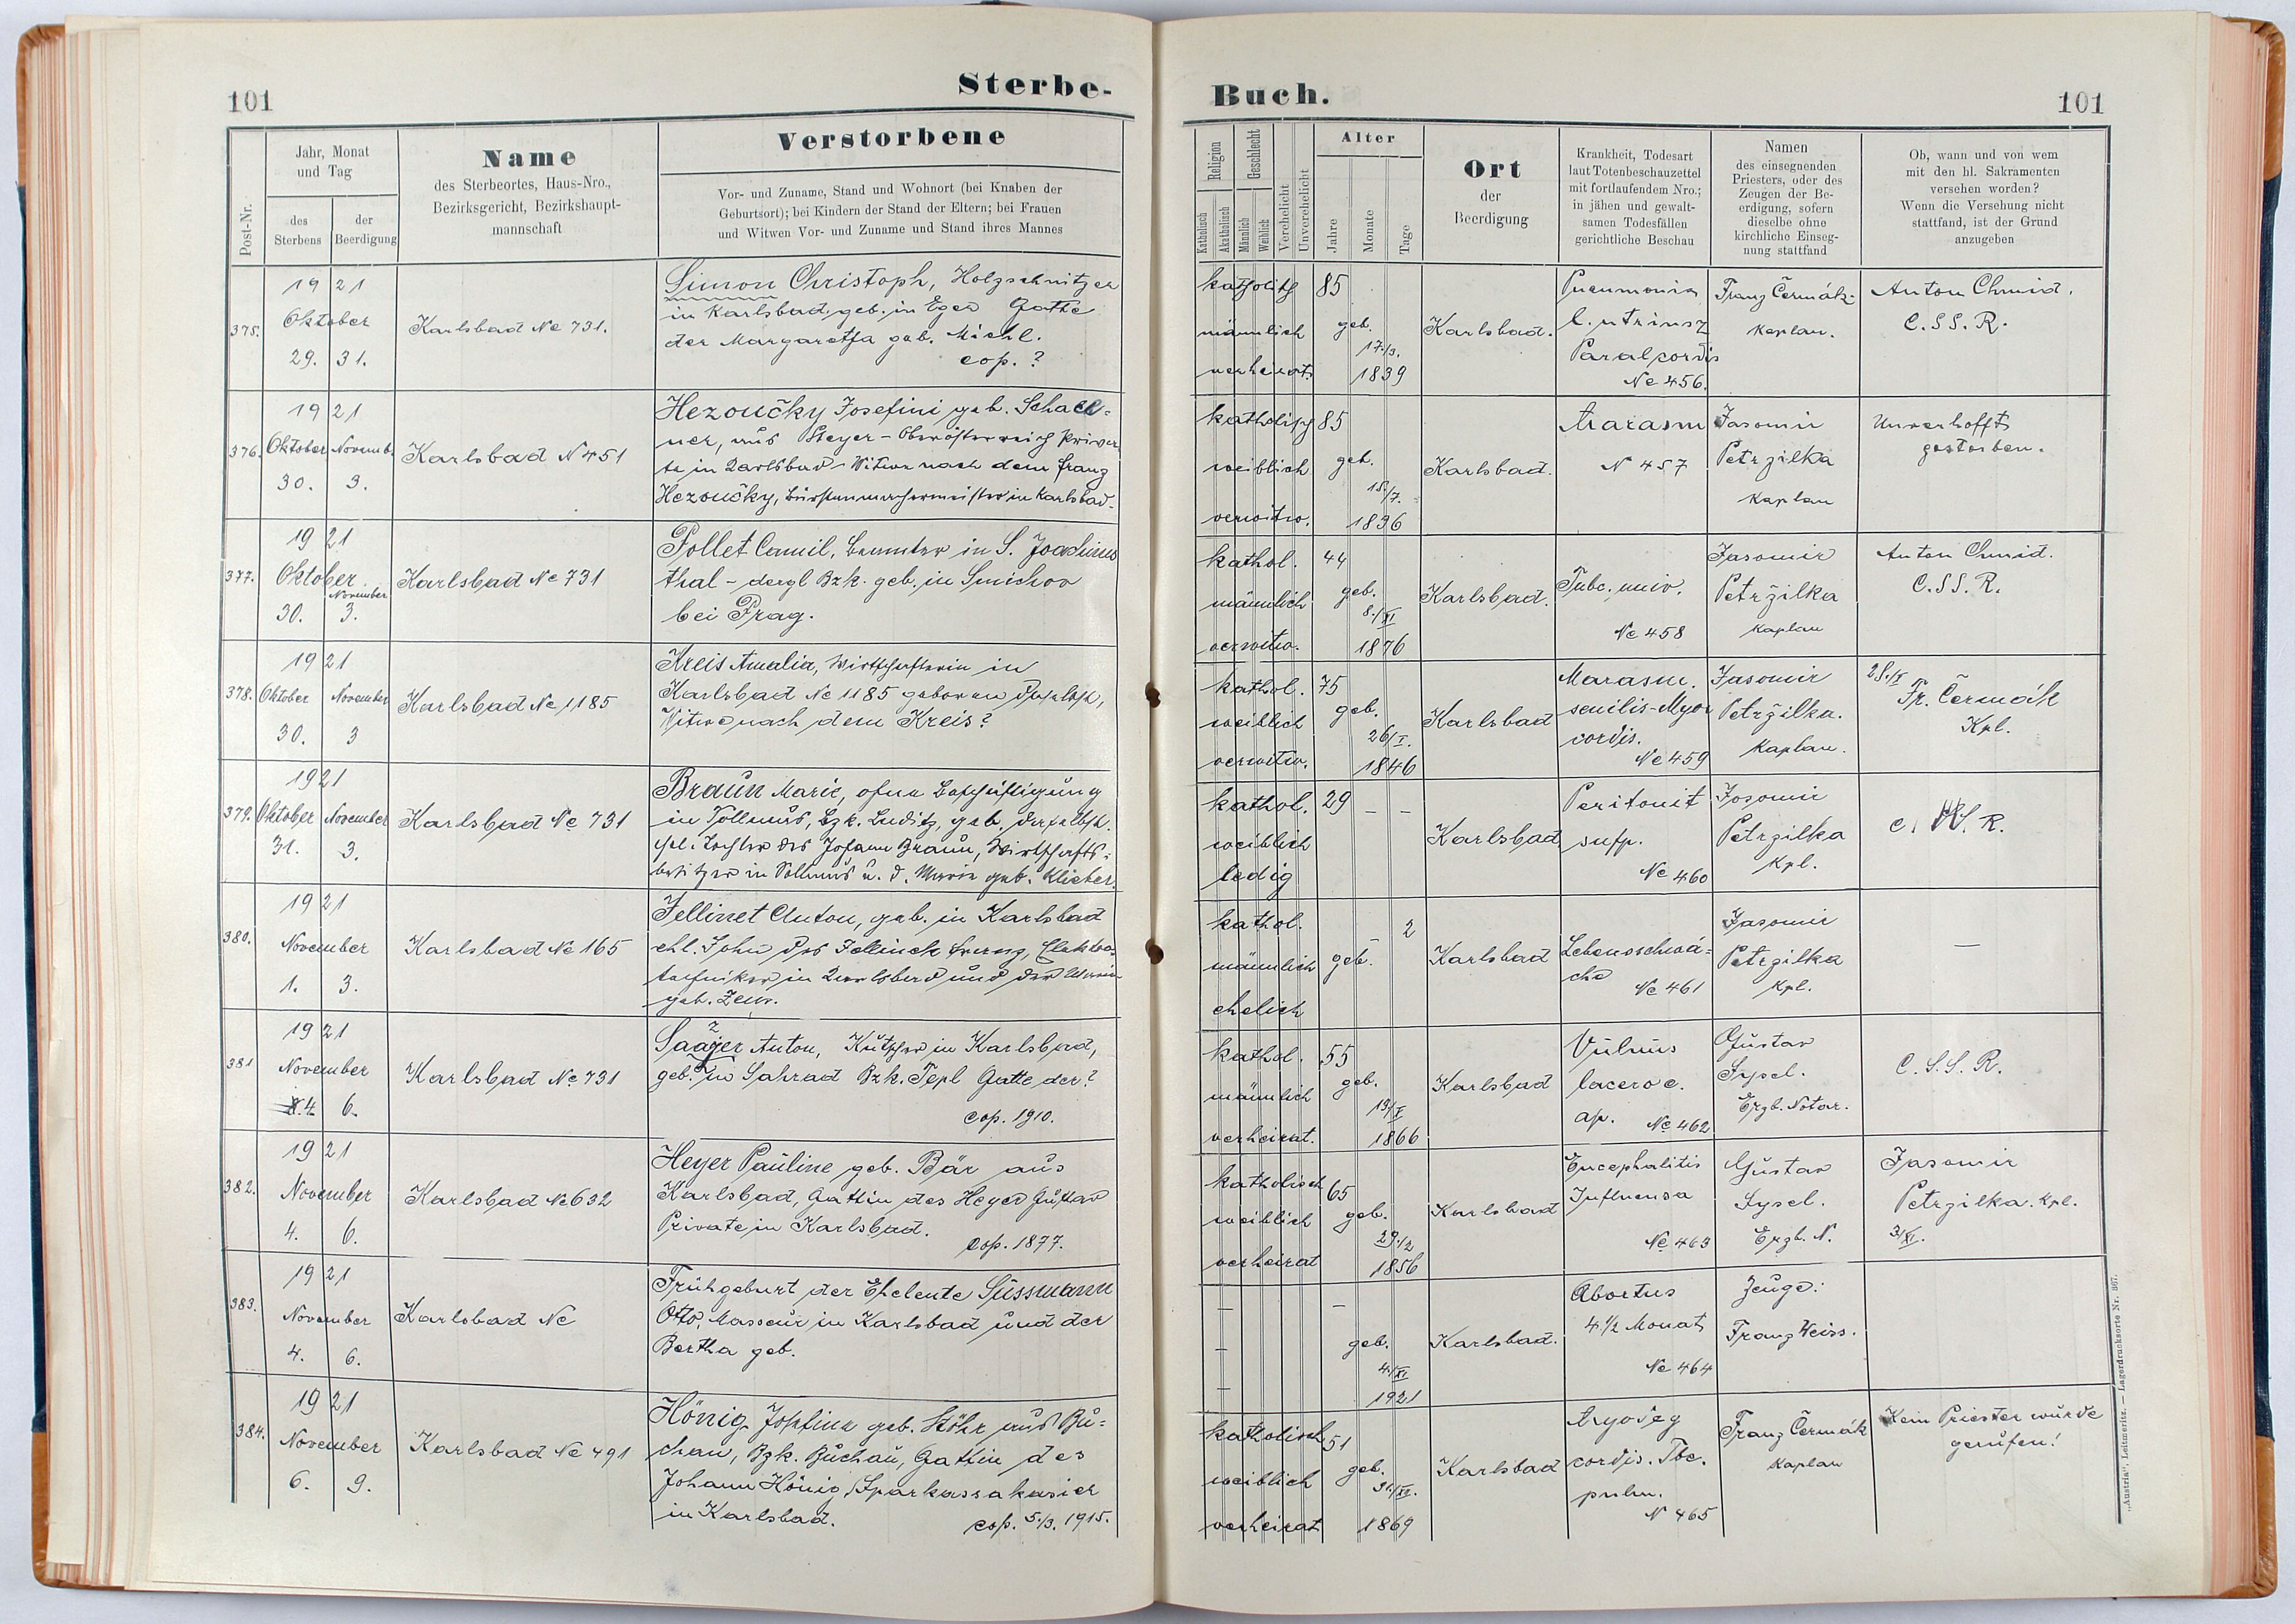 101
Sterbe-
Post-Nr.
Jahr, Monat
und Tag
des
Sterbens
der
Beerdigung
Name
des Sterbeortes, Haus-Nro.,
Bezirksgericht, Bezirkshaupt-
mannschaft
Verstorbene
Vor- und Zuname, Stand und Wohnort (bei Knaben der
Geburtsort); bei Kindern der Stand der Eltern; bei Frauen
und Witwen Vor- und Zuname und Stand ihres Mannes
375.
19 21
Oktober
29. 31.
Karlsbad No 731.
Simon Christoph, Holzschnitzer
in Karlsbad, geb. in Eger Gatte
der Margaretha geb. Michl.
cop. ?
376.
19 21
Oktober Novemb.
30. 3.
Karlsbad N 451
Hezoučky Josefini geb. Schach=
ner, aus Steyer - Oberösterreich
in Karlsbad - Witwe nach dem Franz
Hezoučky, Bürstenmachermeister in Karlsbad.
377.
19 21
Oktober
November
30. 3.
Karlsbad No 731
Pollet Camil, Beamter in S. Joachims
thal - dergl Bzk. geb. in Smichov
bei Prag.
378.
19 21
Oktober November
30. 3
Karlsbad No 1185
Kreis Amalia, Wirtschafterin in
Karlsbad No 1185 geboren daselbst,
Witwe nach dem Kreis?
379.
19 21
Oktober November
31. 3.
Karlsbad No 731
Braun Marie, ohne Beschäftigung
in Sollmus, Bzk. Luditz, geb. daselbst.
ehl. Tochter des Johann Braun, Wirtschafts=
besitzer in Sollmus u. d. Marie geb. Klieber.
380.
19 21
November
1. 3.
Karlsbad No 165
Jellinet Anton, geb. in Karlsbad
ehl. Sohn des Jellinek Franz, Elektro=
techniker in Karlsbad und der
geb.
381
19 21
November
4 6.
Karlsbad No 731
Saazer Anton, Kutscher in Karlsbad,
geb. in Sahrad Bzk. Tepl Gatte der?
cop. 1910.
382.
19 21
November
4. 6.
Karlsbad No 632
Heyer Pauline geb. Bär aus
Karlsbad, Gattin des Heyer Gustav
Private in Karlsbad.
cop. 1877.
383.
19 21
November
4. 6.
Karlsbad No
Frühgeburt der Eheleute Süssmann
Otto, Masseur in Karlsbad und der
Bertha geb.
384.
19 21
November
6. 9.
Karlsbad No 491
Hönig Josefine geb. Stöhr aus Bu=
chau, Bzk. Buchau, Gattin des
Johann Hönig, Sparkassakasier
in Karlsbad.
cop. 5./3. 1915.
Buch.
101
Religion
Katholisch
Akatholisch
Geschlecht
Männlich
Weiblich
Verehelicht
Unverehelicht
Alter
Jahre
Monate
Tage
Ort
der
Beerdigung
Krankheit, Todesart
laut Totenbeschauzettel
mit fortlaufendem Nro.;
in jähen und gewalt-
samen Todesfällen
gerichtliche Beschau
Namen
des einsegnenden
Priesters, oder des
Zeugen der Be-
erdigung, sofern
dieselbe ohne
kirchliche Einseg-
nung stattfand
Ob, wann und von wem
mit den hl. Sakramenten
versehen worden?
Wenn die Versehung nicht
stattfand, ist der Grund
anzugeben
katholisch
männlich
verheirat.
85
geb.
17./3.
1839
Karlsbad.
Pneumonia
No 456.
Franz Čermák
Kaplan.
Anton Chmid.
C. SS. R.
katholisch
weiblich
verwitw.
85
geb.
15./7.
1836
Karlsbad.
Marasm
N 457
Jasomir
Petrzilka
Kaplan
Unverhofft
gestorben.
kathol.
männlich
verwitw.
44
geb.
8./XI
1876
Karlsbad.
Tubc. univ.
No 458
Jasomir
Petržilka
Kaplan
Anton Chmid.
C. SS. R.
kathol.
weiblich
verwitw.
75
geb.
26/I.
1846
Karlsbad
Marasm.
senilis - Myoc
cordis.
No 459
Jasomir
Petržilka.
Kaplan.
28./X
Fr. Čermák
Kpl.
kathol.
weiblich
ledig
29 — —
Karlsbad
Peritonit
supp.
No 460
Jasomir
Petrzilka
Kpl.
kathol.
männlich
ehelich
geb. - 2
Karlsbad
Lebensschwä=
che
No 461
Jasomir
Petrzilka
Kpl.
—
kathol.
männlich
verheirat.
55
geb.
19/X
1866
Karlsbad
Vulnus
lacero c.
ap. No 462
Gustav
Sysel.
Erzb. Notar.
C. S. S. R.
katholisch
weiblich
verheirat
65
geb.
29./12
1856
Karlsbad
Encephalitis
Influensa
No 463
Gustav
Sysel.
Erzb. N.
Jasomir
Petrzilka. Kpl.
3/XI.
—
—
—
—
geb.
4./XI
1921
Karlsbad.
Abortus
4 1/2 Monat
No 464
Zeuge:
Franz Weiss.
katholisch
weiblich
verheirat
51
geb.
1869
Karlsbad
Myodeg
cordis. Tbc.
pulm.
N 465
Franz Čermák
Kaplan
Kein Priester wurde
gerufen!
„Austria“, Leitmeritz. — Lagerdrucksorte Nr. 367.